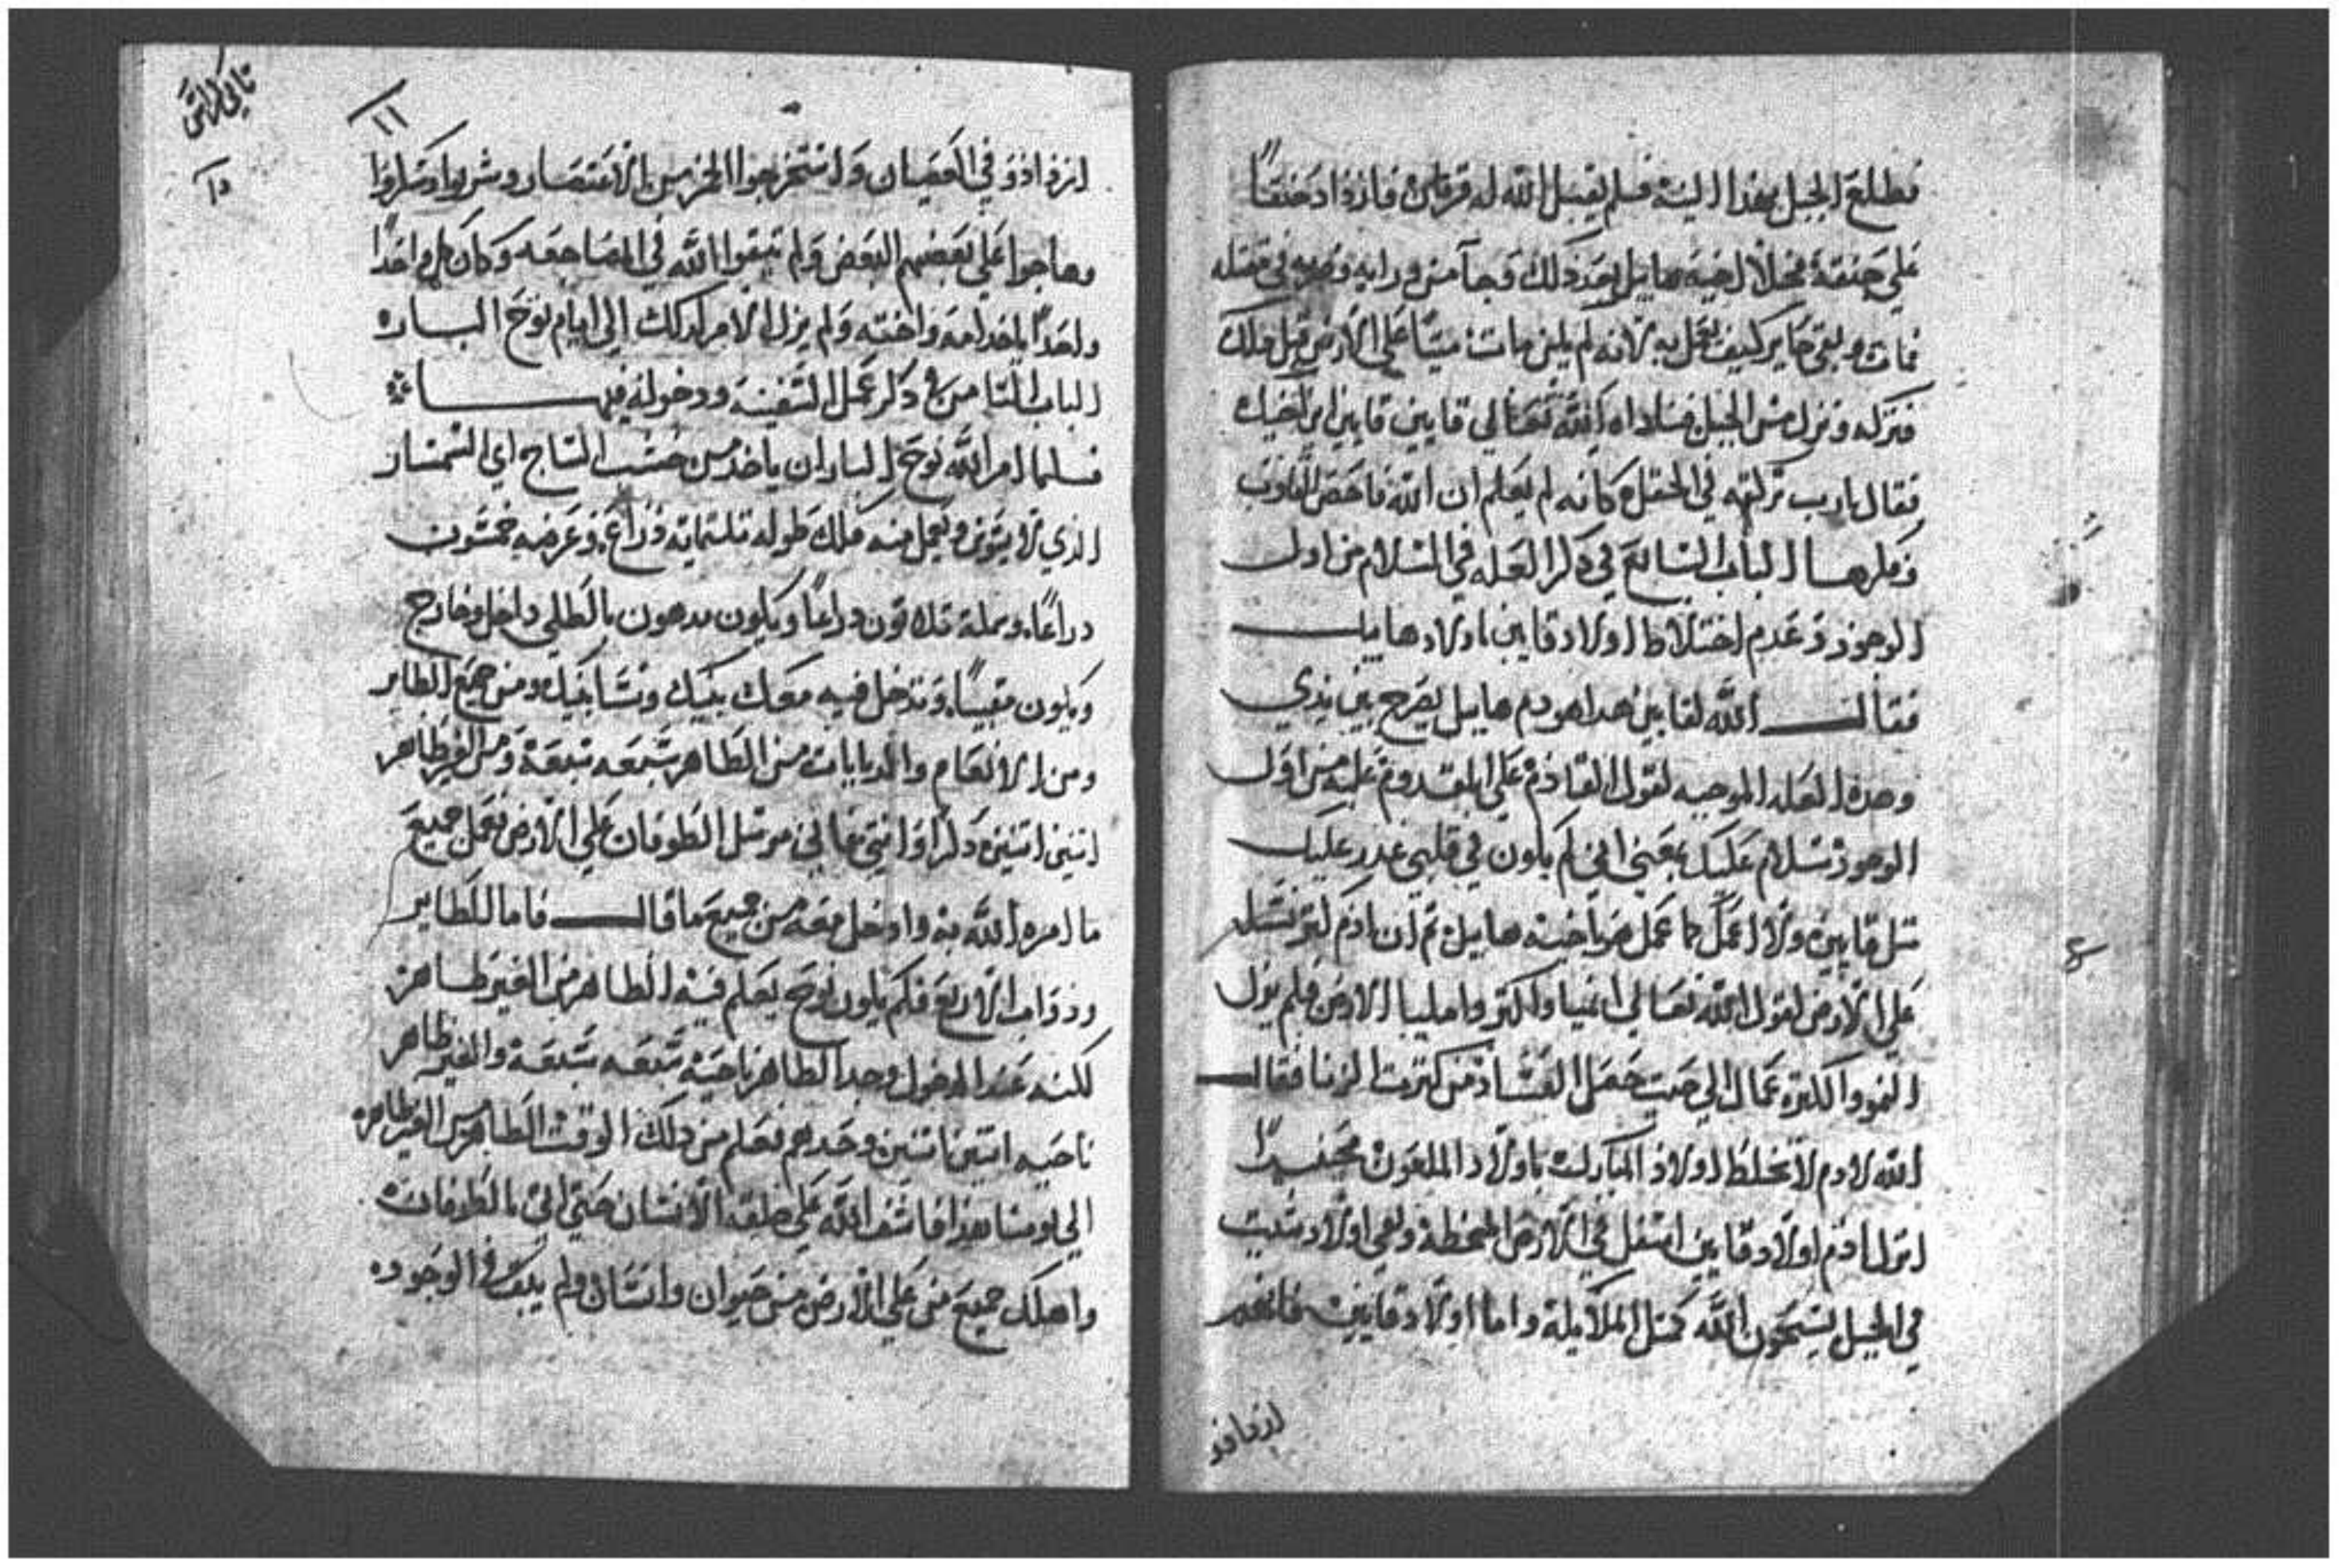 فطلع الجبل بهذا النية فلم يقبل الله له قربان فازداد حنقاً
علي حنقة فخلا لاخيه هابيل بعد ذلك وجآ من ورايه وضربه فقتله
فمات وبقي حاير كيف يعمل به لانه لم يكن مات ميتاً علي الارض قبل ذلك
فتركه ونزل من الجبل فناداه الله تعالي قايين قايين اين اخيك
فقال يارب تركته في الحقل كانه لم يعلم ان الله فاحص القلوب
الباب السابع في ذكر العله في السلام من اول
الوجود وعدم اختلاط اولاد قايين باولاد هابيل
فقال الله لقايين هدا هودم هابيل يصرخ بين يدي
وهده العله الموجبه لقول القادم علي المقدوم عليه من اول
الوجود سلام عليك بمعني اني لم يكون في قلبي غدر عليك
متل قايين ولا اعمل كما عمل هو باخيه هابيل تم ان ادم كتر نسله
علي الارض لقول الله تعالي انميا واكترو واملييا الارض فلم يزل
النمو والكتره عمال الي حيت حصل الفساد من كترت الزنا فقال
الله لادم لا تخلط اولاد المباركه باولاد الملعون فحينيدا
انزل ادم اولاد قايين اسفل في الارض المنحطة وبقي اولاد شيت
في الجبل يسبحون الله كمتل الملايكة واما اولاد قايين فانهم
ازدادو
تاني كراس
١١
ازدادو في العصيان واستخرجوا الخمر من الاعتصار وشربوا وسكروا
وهاجوا علي بعضهم البعض ولم يتقوا الله في المضاجعه وكان كل واحداً
واحداً ياخد امه واخته ولم يزل الامر كدلك الي ايام نوح الباره
الباب التامن في دكر عمل السفينه ودخوله فيها
فلما امر الله نوح البار ان ياخد من خشب الساج اي الشمشار
الذي لا يسوس ويعمل منه فلك طوله تلتمايه دراع وعرضه خمسون
دراعاً وسمكه تلاتون دراعاً ويكون مدهون بالطلي داخل وخارج
ويكون مقبياً وتدخل فيه معك بنيك ونسا بنيك ومن جميع الطاير
ومن الانعام والدبابات من الطاهر سبعه سبعة ومن الغير طاهر
اتنين اتنين دكرا وانتي فاني مرسل الطوفان علي الارض فعمل جميع
ما امره الله به وادخل معه من جميع ما قال فاما الطاير
ودواب الاربع فلم يكون نوح يعلم فيه الطاهر من الغير طاهر
لكنه عند الدخول وجد الطاهر ناحيه سبعه سبعة والغير طاهر
ناحيه اتنين اتنين وحدهم فعلم من دلك الوقت الطاهر من الغير طاهر
الي يومنا هذا فاسف الله علي خلقه الانسان حتي اتي بالطوفان
واهلك جميع من علي الارض من حيوان وانسان ولم يبق في الوجوده